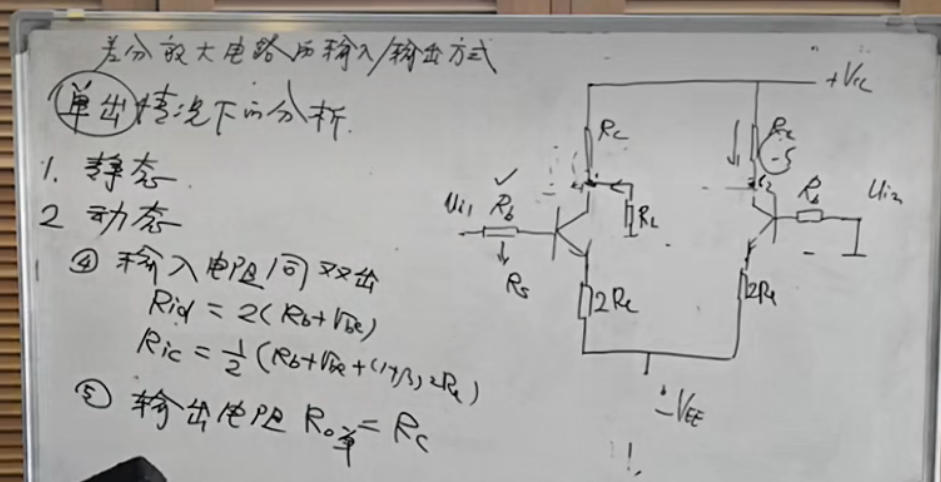 差分放大电路的输入/输出方式
单出情况下的分析.
1. 静态
2 动态
④ 输入电阻同双出
Rid = 2(Rb+rbe)
Ric = 1/2 (Rb+rbe+(1+β)2Re)
⑤ 输出电阻 Ro单 = Rc
+Vcc
Rc
Rc
-5
c2
Ui1
Rb
RL
Rb
Ui2
Rs
2Re
2Re
-VEE